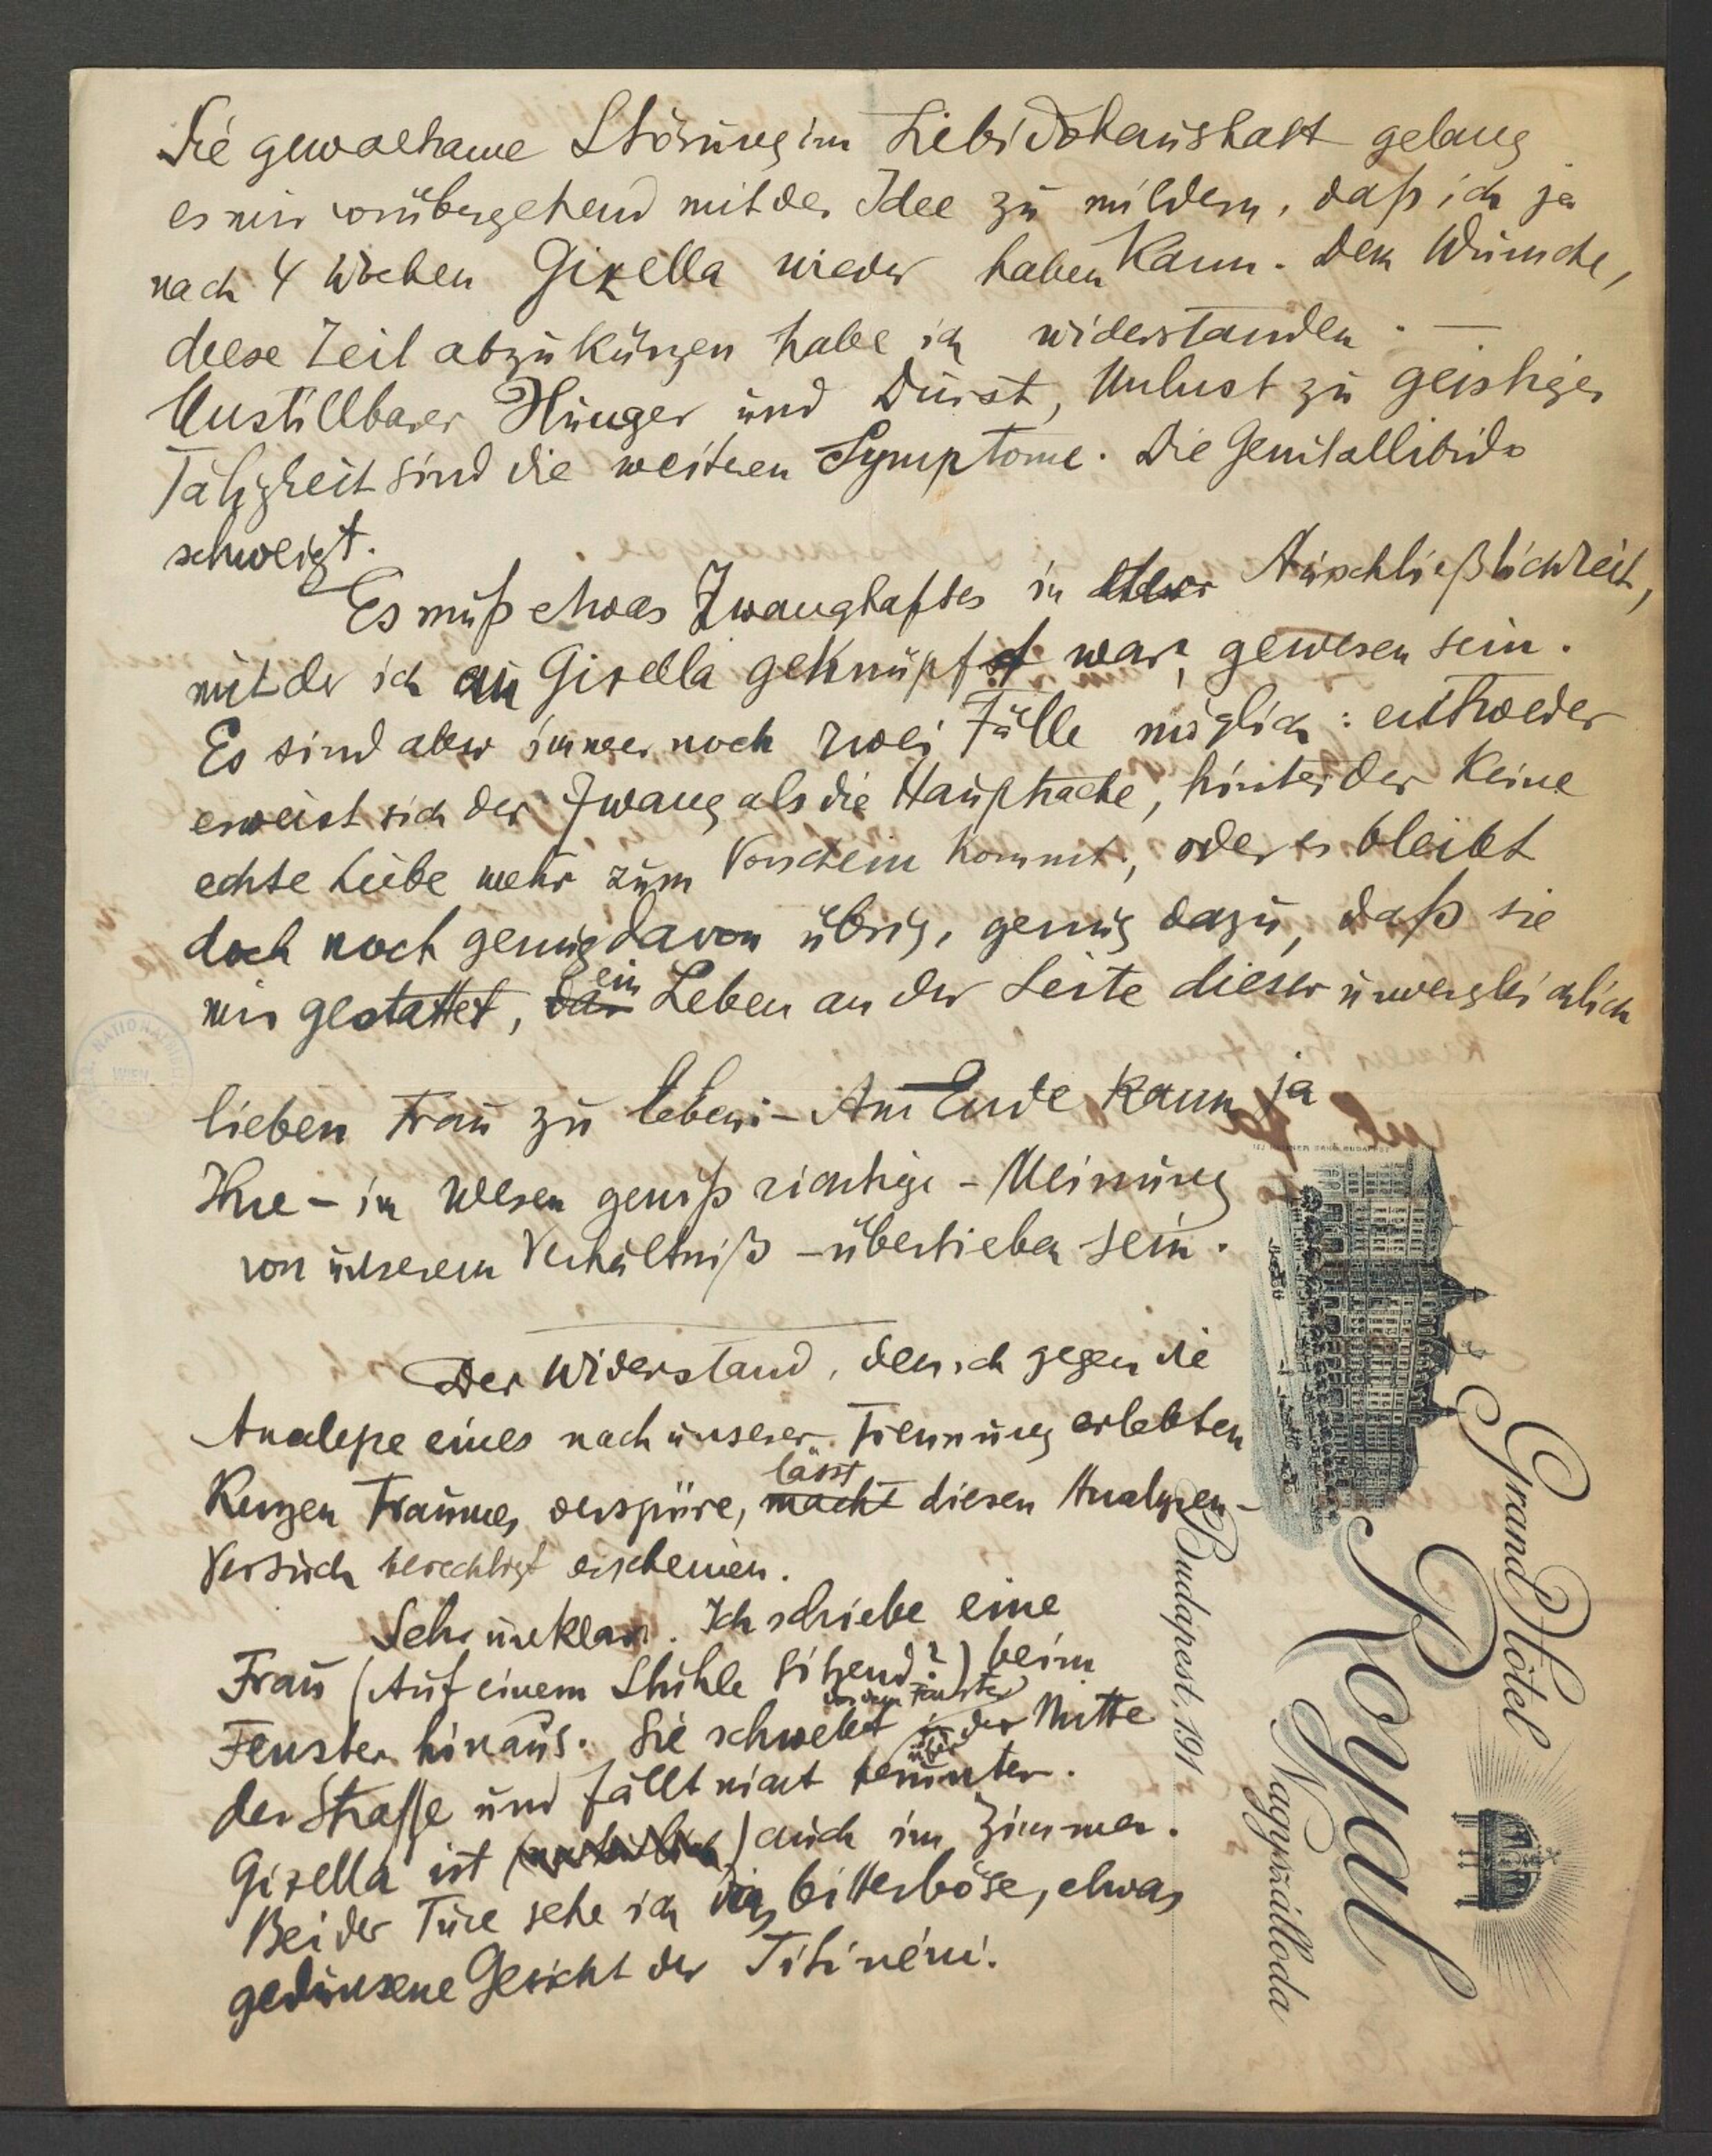 Die gewaltsame Störung im Libidohaushalt gelang
es mir vorübergehend mit der Idee zu mildern, daß ich ja
nach 4 Wochen Gizella wieder haben kann. Dem Wunsche,
diese Zeit abzukürzen habe ich widerstanden. —
Unstillbarer Hunger und Durst, Unlust zu geistiger
Tätigkeit sind die weiteren Symptome. Die Genitallibido
schweigt.
Es muß etwas Zwanghaftes in der Ausschließlichkeit,
mit der ich an Gizella geknüpft war, gewesen sein.
Es sind aber immer noch zwei Fälle möglich: entweder
erweist sich der Zwang als die Hauptsache, hinter der keine
echte Liebe mehr zum Vorschein kommt, oder es bleibt
doch noch genug davon übrig, genug dazu, daß sie
mir gestattet, das ein Leben an der Seite dieser unvergleichlich
lieben Frau zu leben. – Am Ende kann ja
Ihre – im Wesen gewiß richtige – Meinung
von unserem Verhältniß – übertrieben sein.
Der Widerstand, den ich gegen die
Analyse eines nach unserer Trennung erlebten
kurzen Traumes verspüre, macht lässt diesen Analysen-
Versuch berechtigt erscheinen.
Sehr unklar. Ich schiebe eine
Frau (Auf einem Stuhle sitzend?) beim
Fenster hinaus. Sie schwebt vor dem Fenster in der über Mitte
der Strasse und fällt nicht herunter.
Gizella ist (natürlich) auch im Zimmer.
Bei der Türe sehe ich das bitterböse, etwas
gedunsene Gesicht der Titinéni.
Grand Hôtel
Royal
Nagyszálloda
Budapest, 191